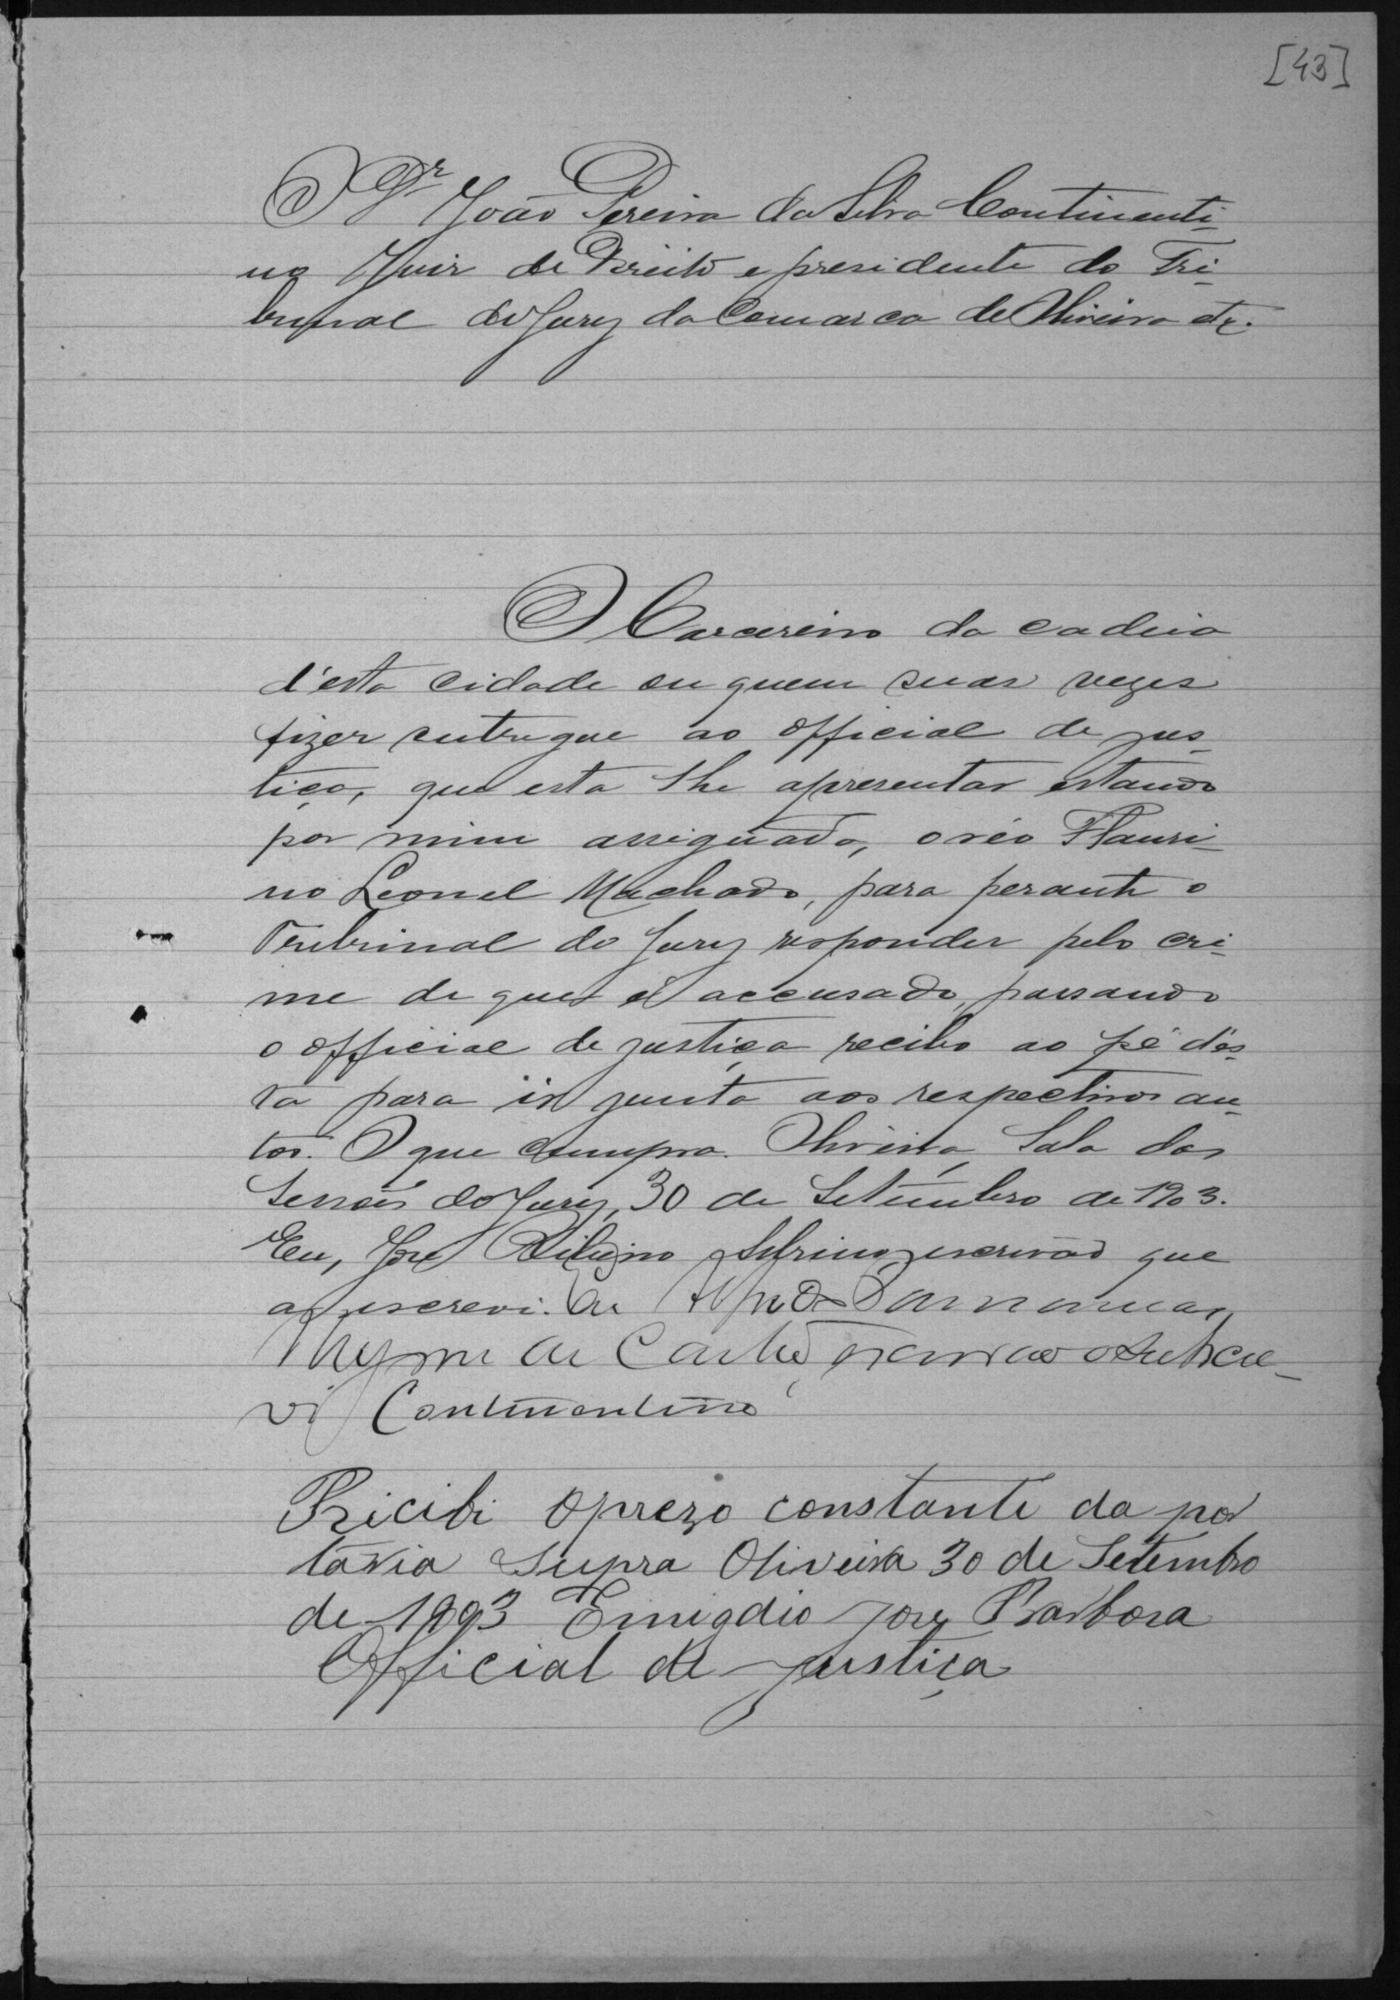 [43]
O Dr João Pereira da Silva Continenti-
no Juiz de Direito e presidente do Tri-
bunal do Jury da Comarca de Oliveira etc.
O Carcereiro da cadeia
d'esta cidade ou quem suas vezes
fizer entregue ao official de jus-
tiça, que esta lhe apresentar estando
por mim assignada, o réo Flauri-
no Leonel Machado, para perante o
Tribunal do Jury responder pelo cri-
me de que é accusado, passando
o official de justiça recibo ao pé d'es-
ta para ir junta aos respectivos au-
tos. O que cumpra. Oliveira, Sala das
Sessões do Jury, 30 de Setembro de 1903.
Eu, José escrivão que
a escrevi. Eu
de Castro, escrivão o subscre-
vi Continentino
Recibi o prezo constante da por
taria supra Oliveira 30 de Setembro
de 1903 Emigdio José Barbosa
Official de justiça